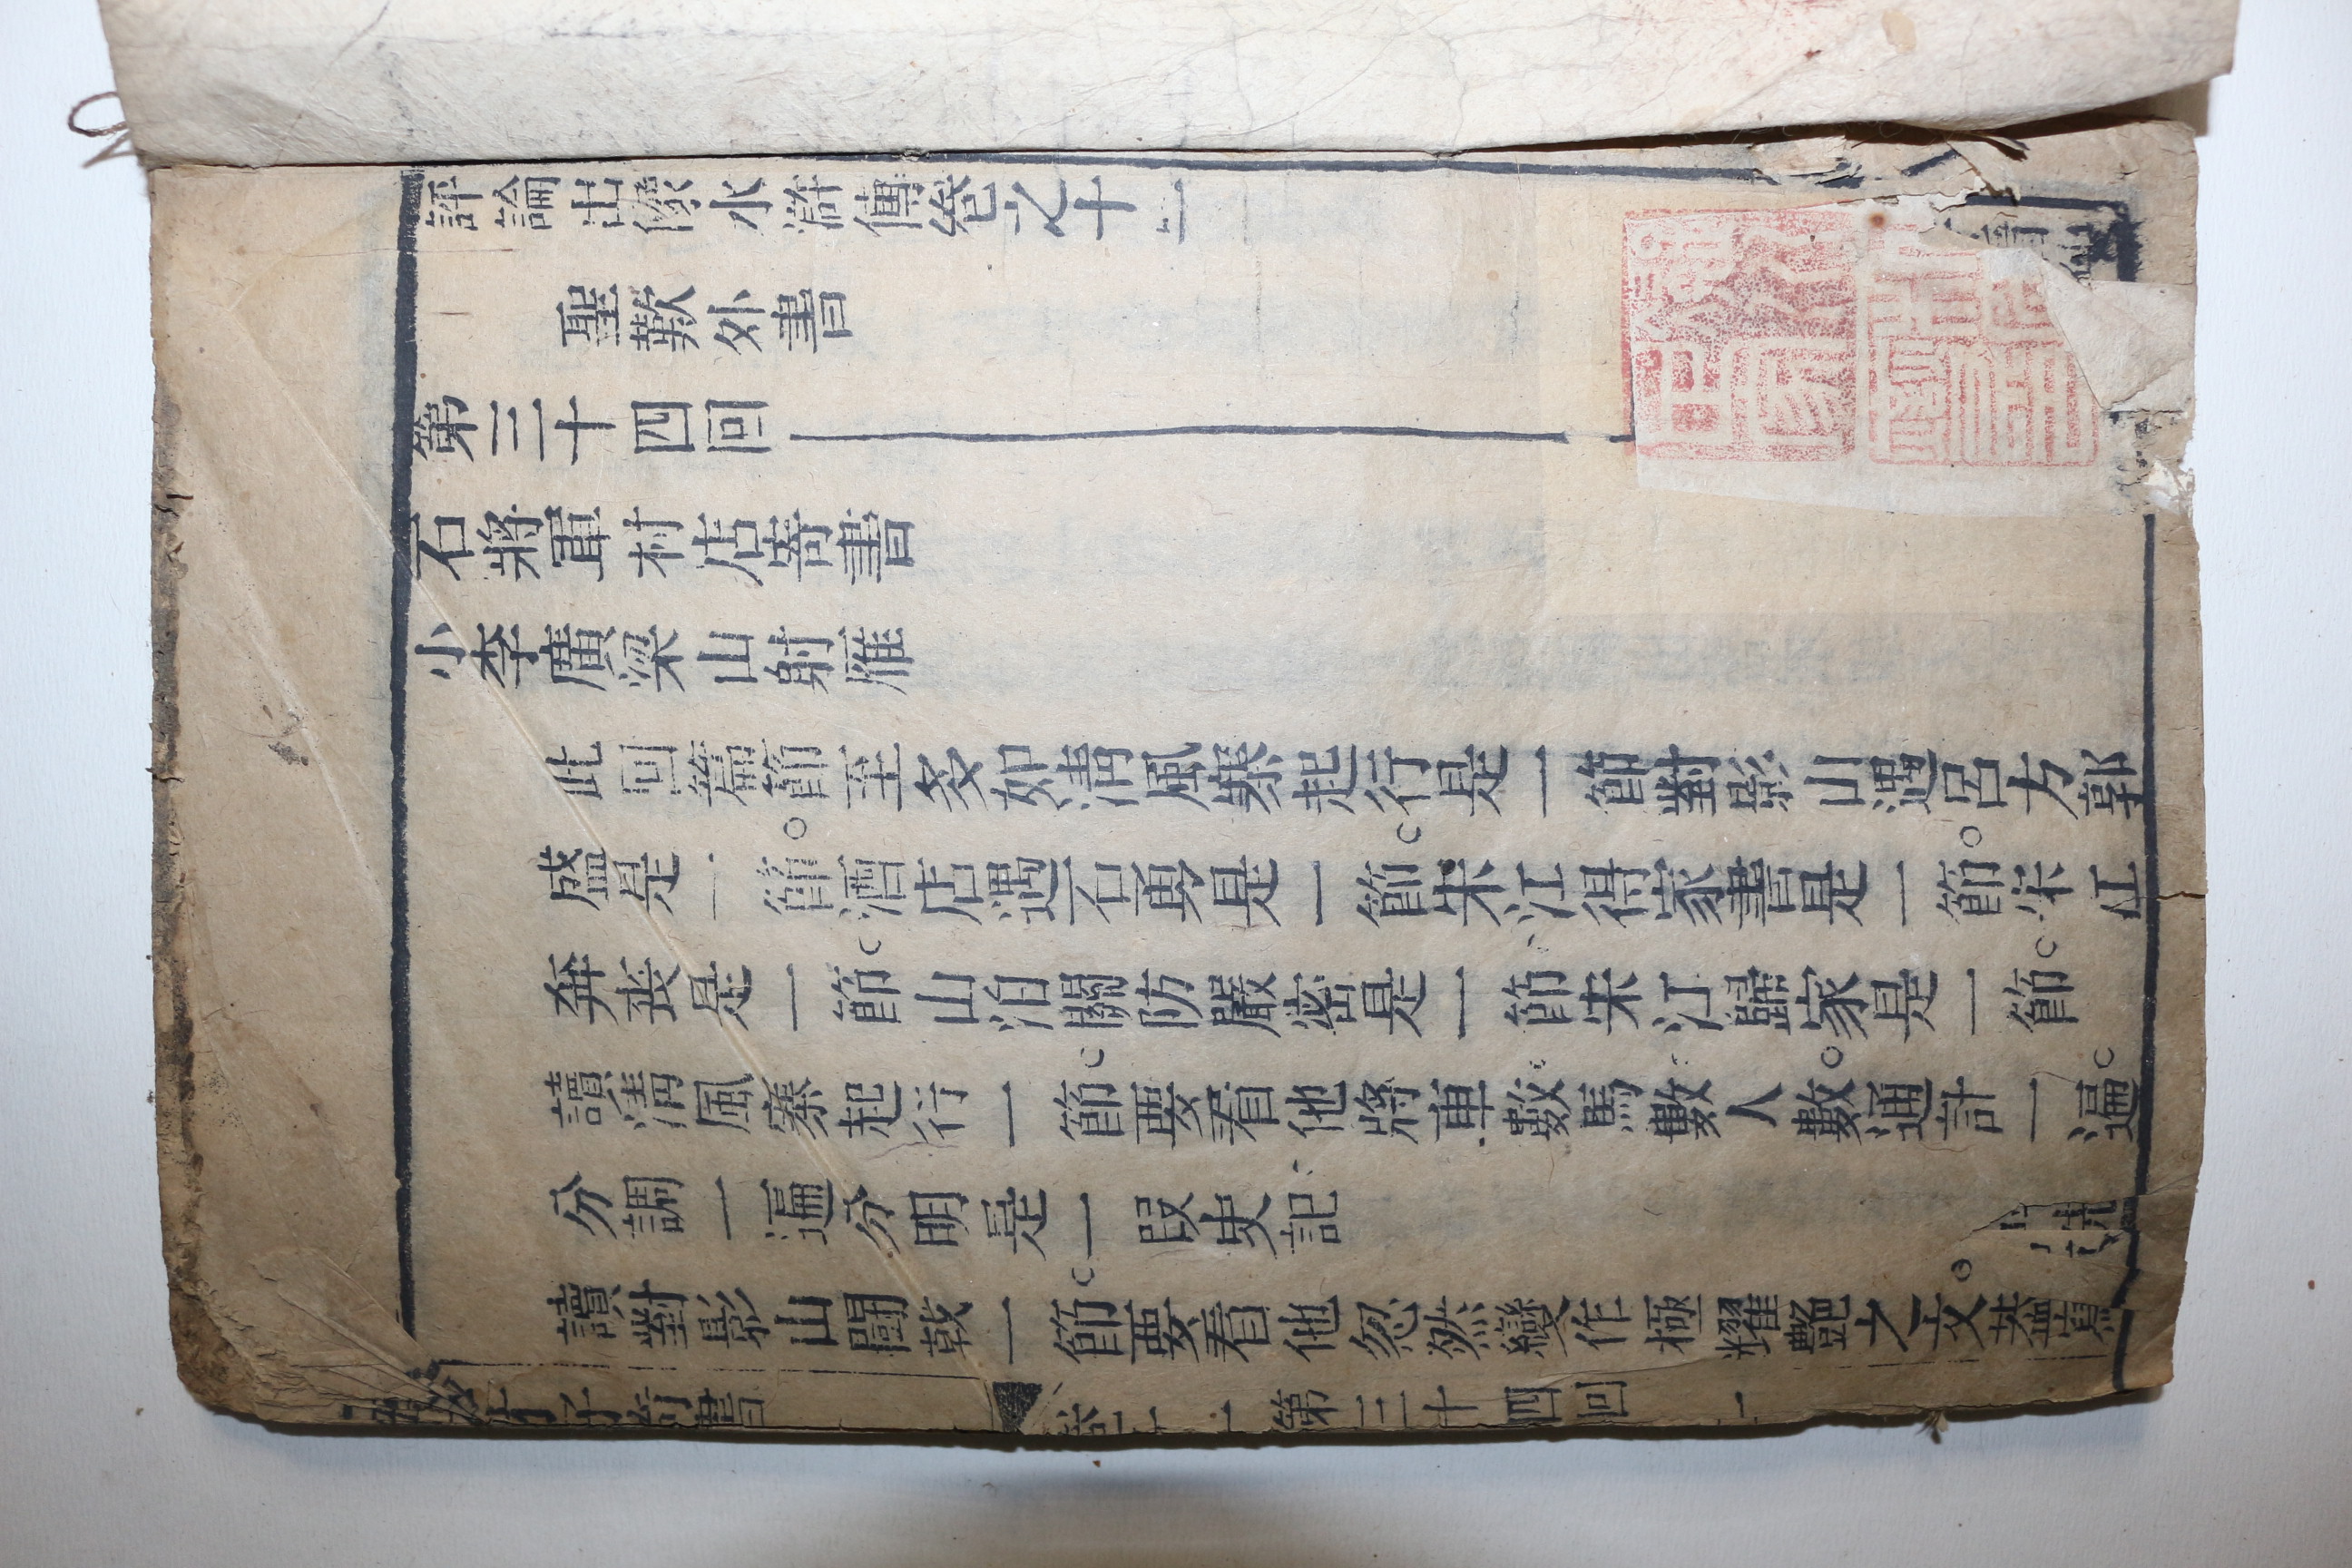 評論出像水滸傳卷之十二
聖歎外書
第三十四回
石將軍村店寄書
小李廣梁山射雁
此回篇節至多如淸風寨起行是一節對影山遇呂方郭
盛是一節酒店遇石勇是一節宋江得家書是一節宋江
奔喪是一節山泊關防嚴密是一節宋江歸家是一節
讀淸風寨起行一節要看他將車數馬數人數通計一遍
分調一遍分明是一段史記
讀對影山鬪戟一節要看他忽然變作極耀艷之文蓋寫
才子奇書
第三十四回
一